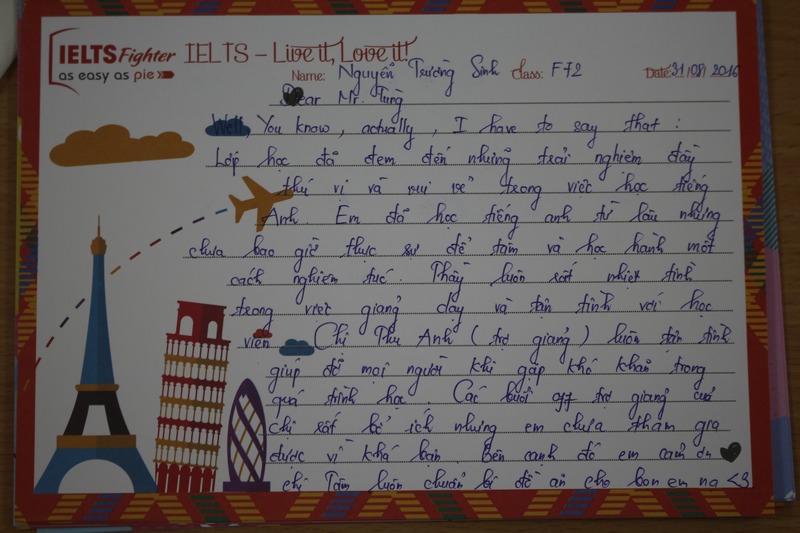 IELTS Fighter IELTS – Live it, Love it!
as easy as pie
Name: Nguyễn Trường Sinh Class: F72 Date: 31/08/2016
Dear Mr. Tùng
Well, You know, actually, I have to say that:
Lớp học đã đem đến những trải nghiệm đầy
thú vị và vui vẻ trong việc học tiếng
Anh. Em đã học tiếng anh từ lâu nhưng
chưa bao giờ thực sự để tâm và học hành một
cách nghiêm túc. Thầy luôn rất nhiệt tình
trong việc giảng dạy và tận tình với học
viên Chị Thu Anh (trợ giảng) luôn tận tình
giúp đỡ mọi người khi gặp khó khăn trong
quá trình học. Các buổi off trợ giảng của
chị rất bổ ích nhưng em chưa tham gia
được vì khá bận. Bên cạnh đó em cảm ơn
chị Tâm luôn chuẩn bị đồ ăn cho bọn em nạ <3